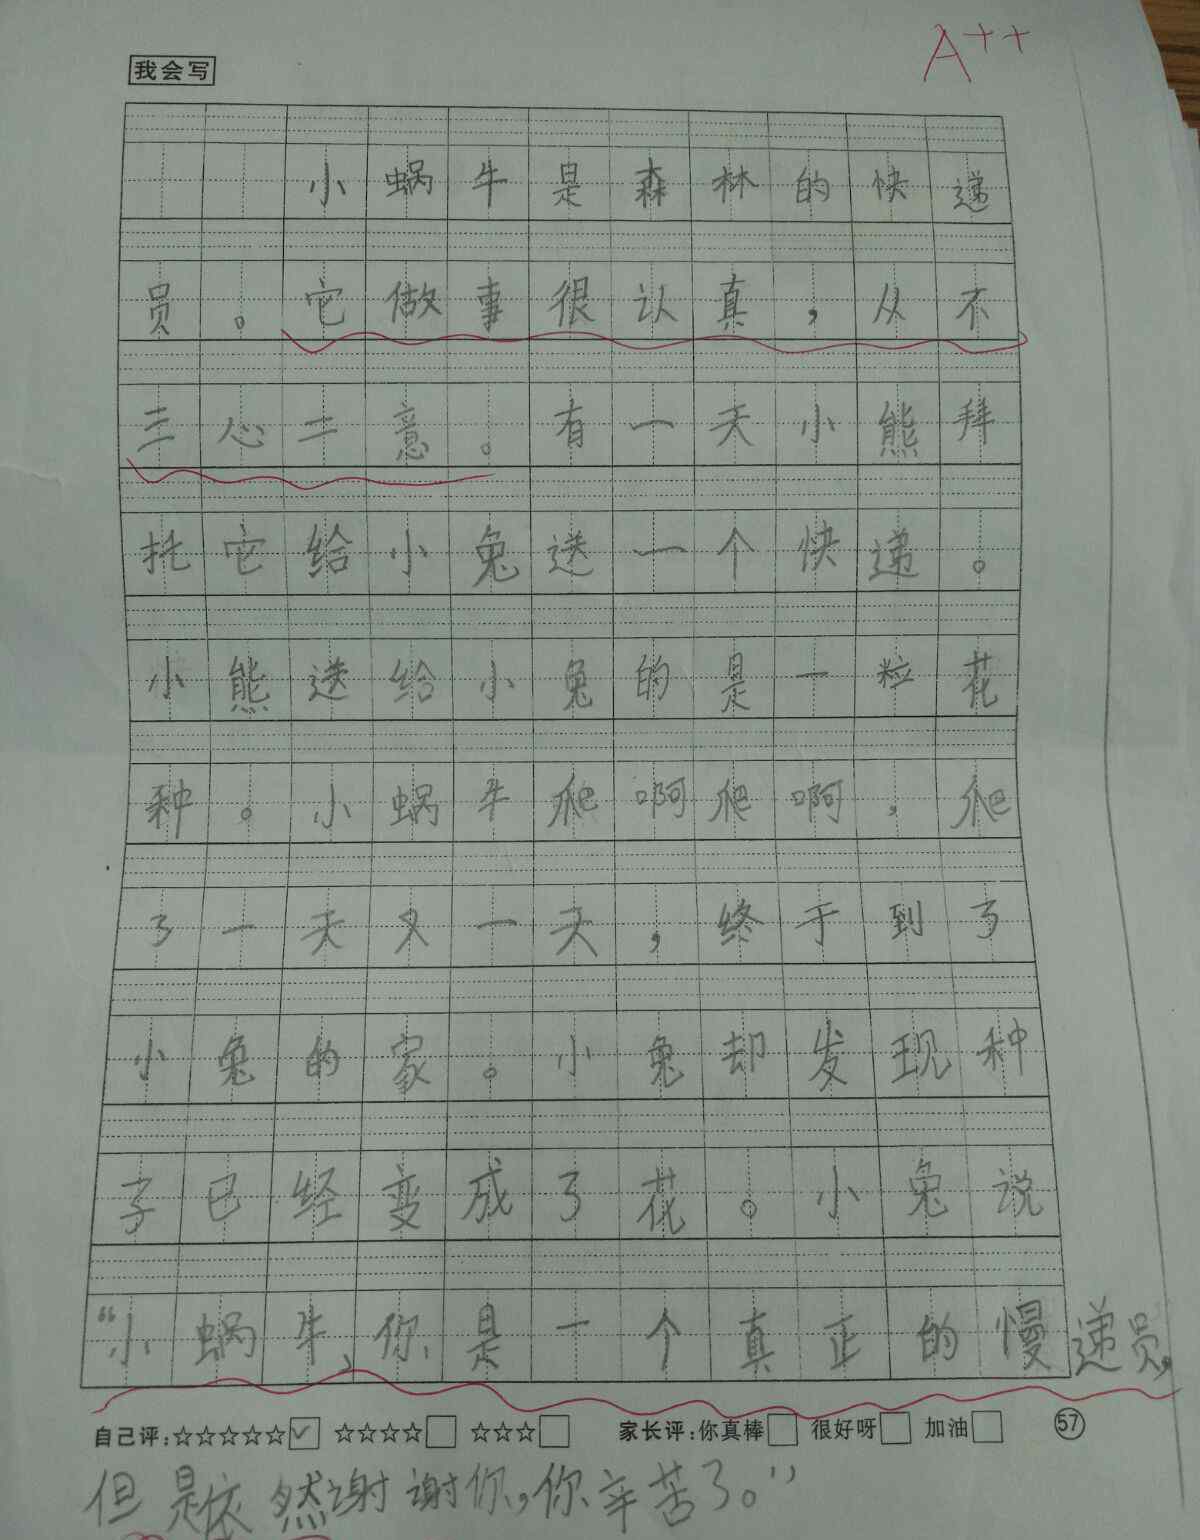 A++
我会写
小蜗牛是森林的快递
员。它做事很认真，从不
三心二意。有一天小熊拜
托它给小兔送一个快递。
小熊送给小兔的是一粒花
种。小蜗牛爬啊爬啊，爬
了一天又一天，终于到了
小兔的家。小兔却发现种
子已经变成了花。小兔说
“小蜗牛、你是一个真正的慢递员，
自己评：☆☆☆☆☆☑ ☆☆☆☆□ ☆☆☆□ 家长评：你真棒□ 很好呀□ 加油□ 57
但是依然谢谢你，你辛苦了。”